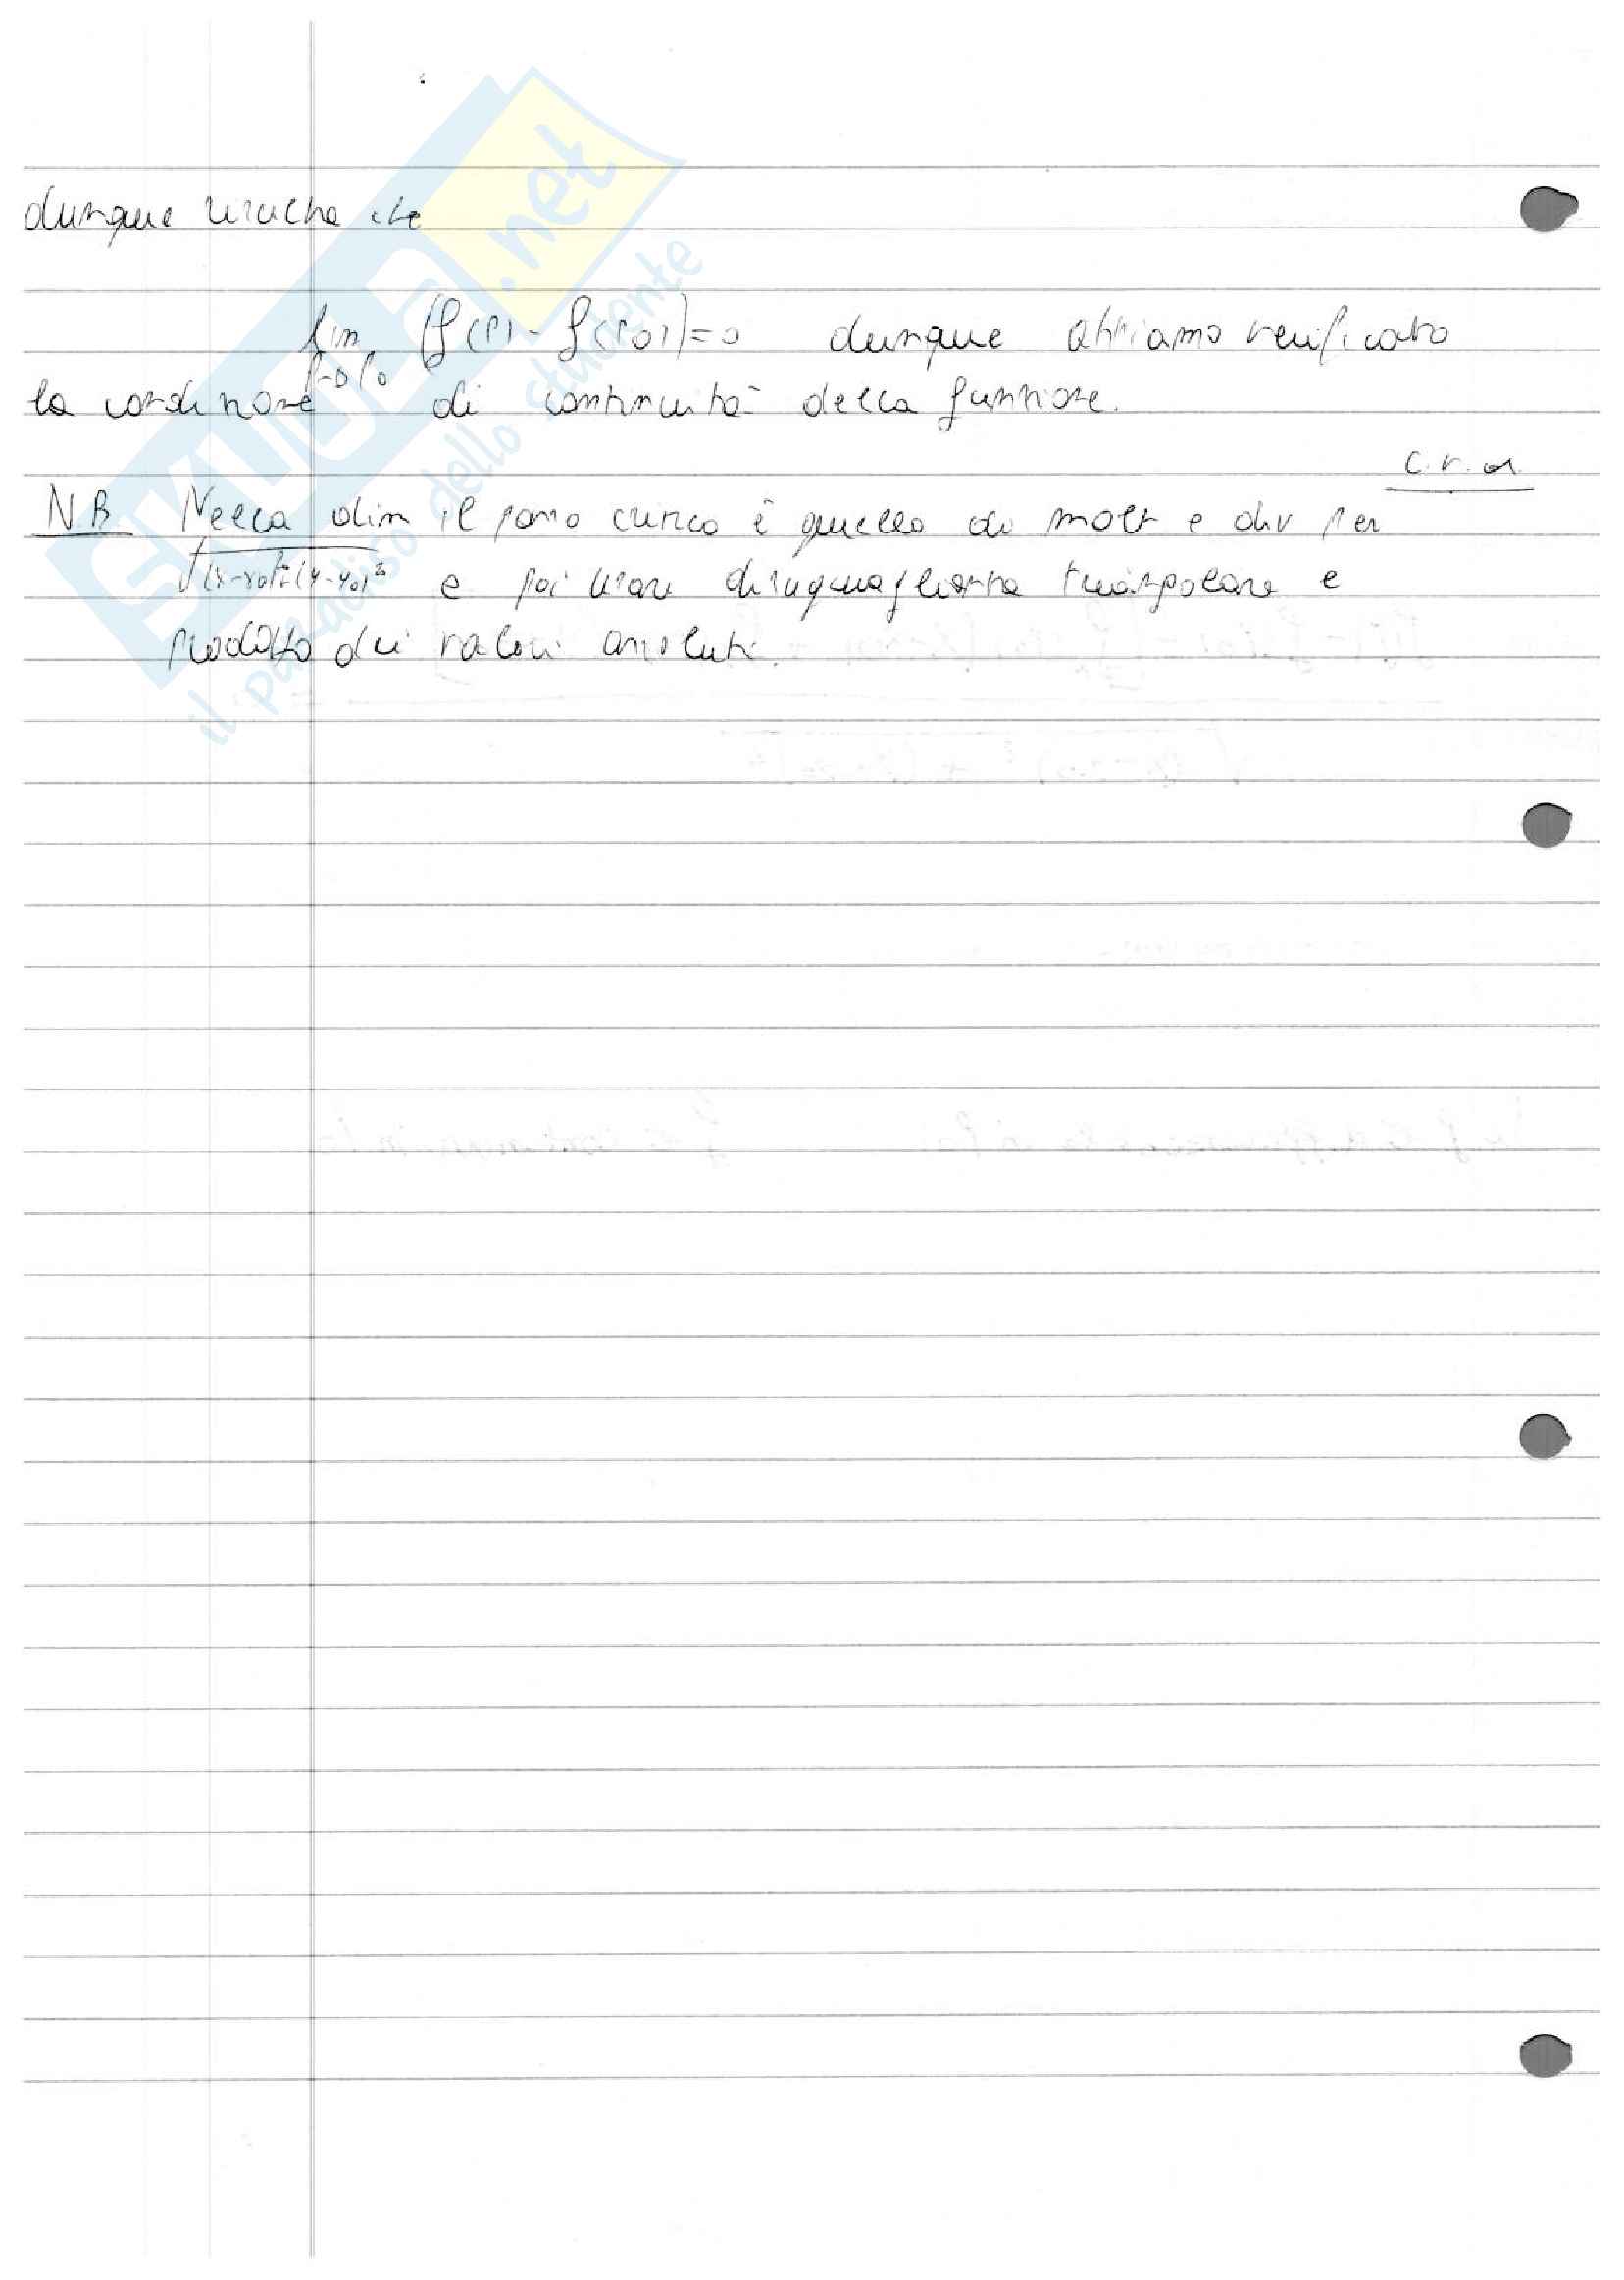 dunque risulta che
lim (f(P) - f(P0)) = 0 dunque abbiamo verificato
P→P0
la condizione di continuità della funzione.
c.v.d.
NB Nella dim il passo cruciale è quello di molt e div per
√(x-x0)²+(y-y0)² e poi usare disuguaglianza triangolare e
prodotto dei valori assoluti.
SKUOLA.net
il paradiso dello studente